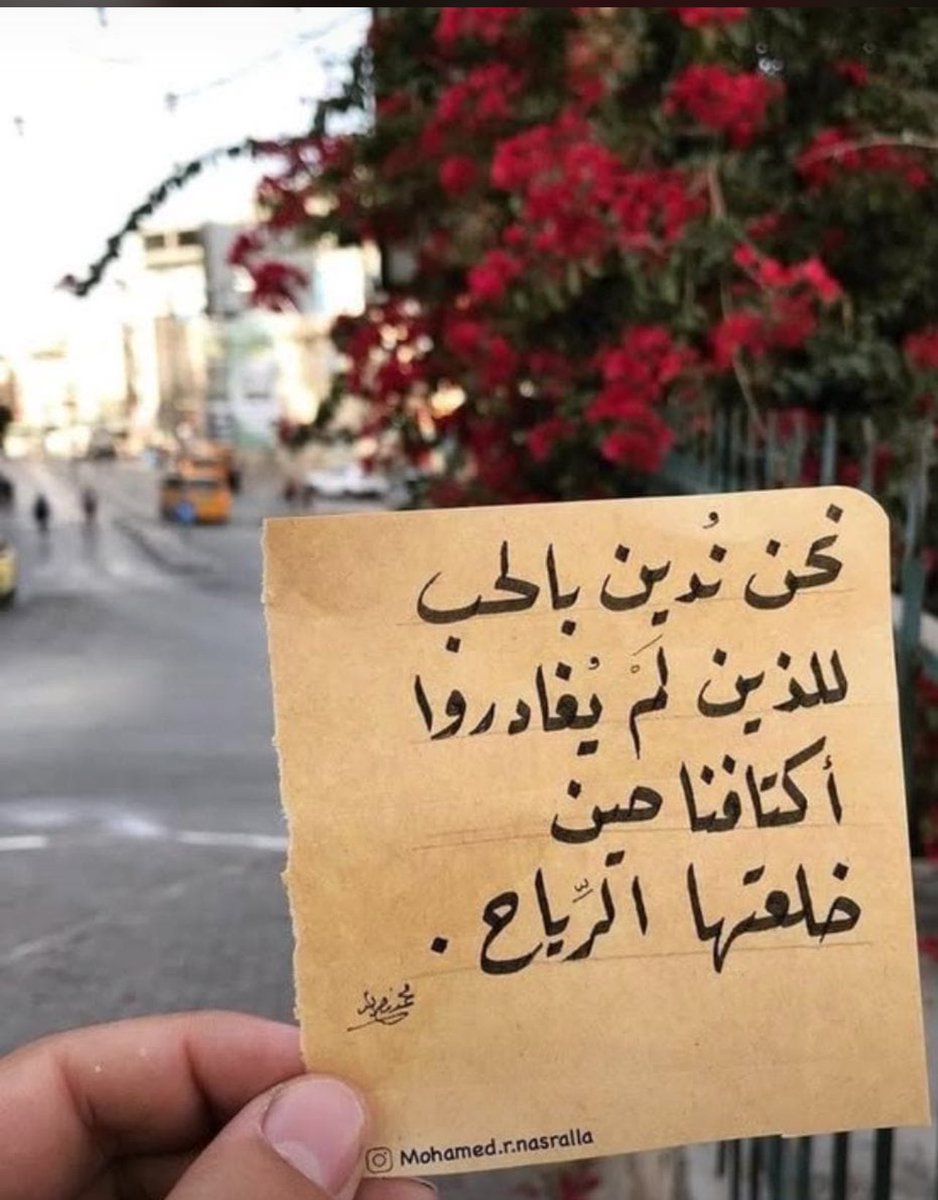 نحن نُدين بالحب
للذين لَمْ يُغادروا
أكتافنا حين
خلعتها الرِّياح .
Mohamed.r.nasralla